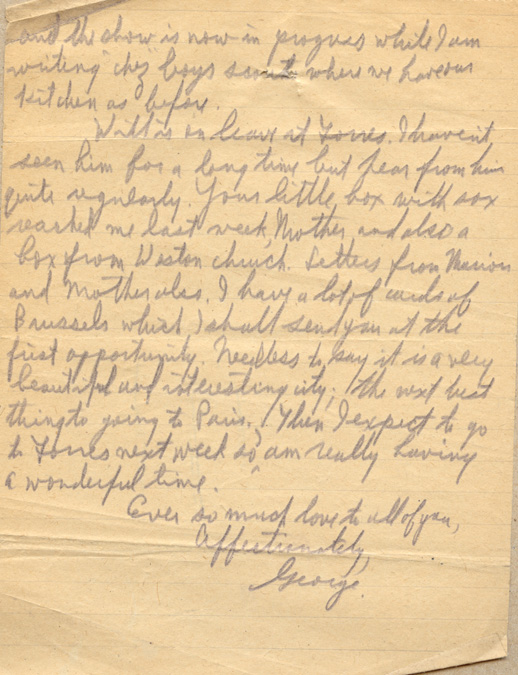 and the show is now in progress while I am
writing "chez" boys where we have our
kitchen as before.
Will is on leave at Forres. I haven't
seen him for a long time but hear from him
quite regularly. Your little box with sox
reached me last week, Mother, and also a
box from Weston church. Letters from Marion
and Mother also. I have a lot of cards of
Brussels which I shall send you at the
first opportunity. Needless to say it is a very
beautiful and interesting city; the next best
thing to going to Paris. Then I expect to go
to Forres next week so am really having
a wonderful time.
Ever so much love to all of you,
Affectionately,
George.